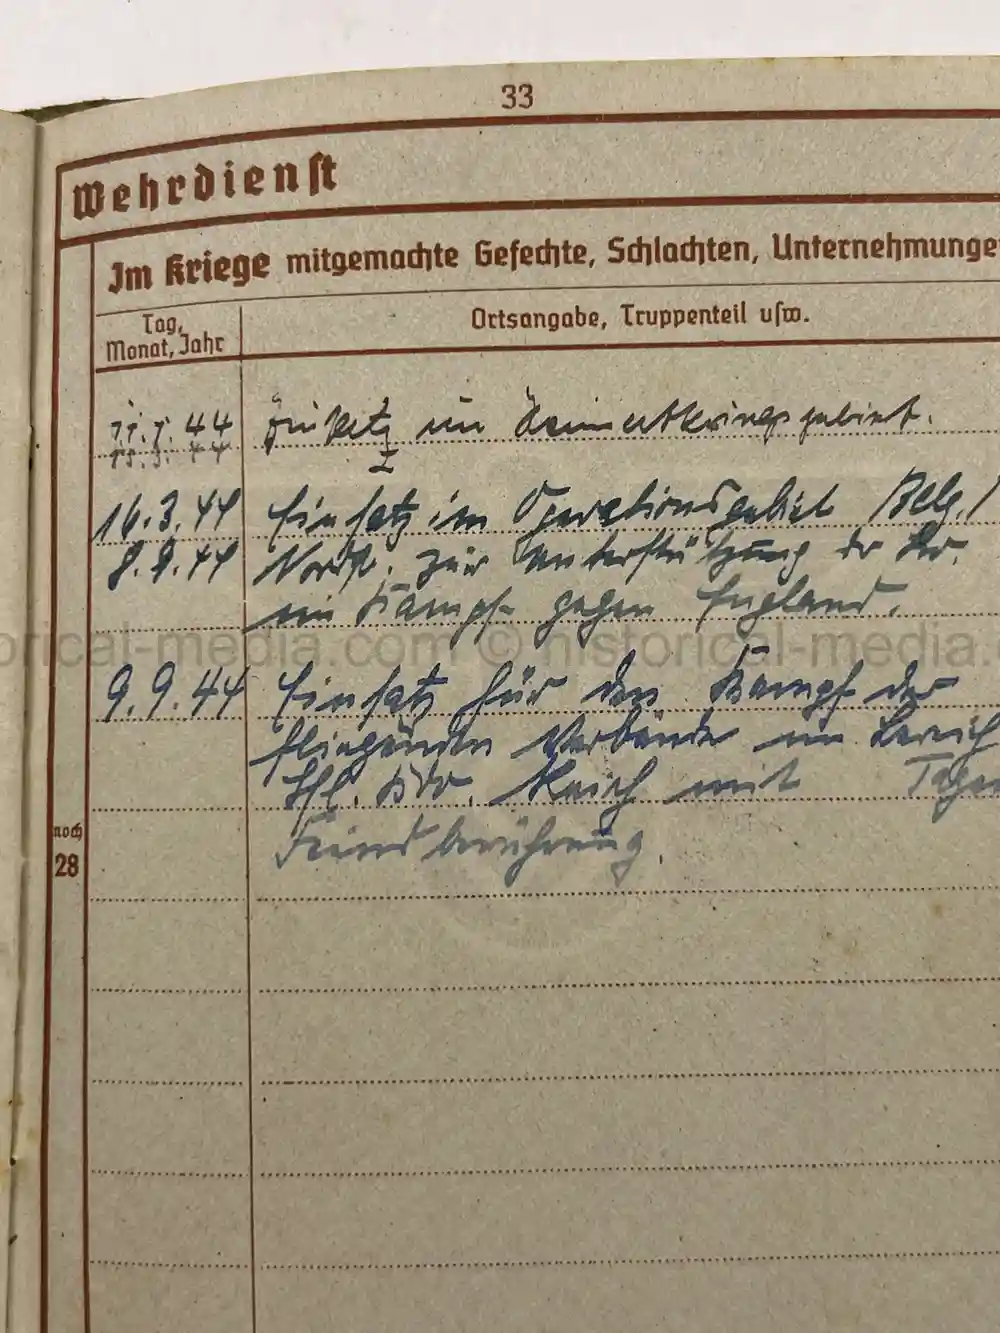 33
Wehrdienst
Im Kriege mitgemachte Gefechte, Schlachten, Unternehmunge
Ortsangabe, Truppenteil usw.
Tag,
Monat, Jahr
44 Einsatz im Heimatkriegsgebiet.
16.3.44 Einsatz im Operationsgebiet Belg./
8.9.44 Nordfr. zur Unterstützung der
im Kampf gegen England.
historical-media.com © historical-media.
9.9.44 Einsatz für den Kampf der
fliegenden Verbände im Bereich
Reich mit
noch
Feindberührung.
28